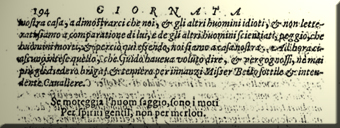 194 GIORNATA
nostra casa, a dimostrarci che noi, & gli altri huomini idioti, & non lette-
rati siamo a comparatione di lui, e de gli altri huomini scientiati, peggio, che
huomini morti, & perciò qui essendo, noi siamo a casa nostra. Allhora cia-
scuno intese quello, che Guido haueva voluto dire, & vergognossi, ne mai
più gli diedero briga, & tennero per innanzi Messer Betto sottile & inten-
dente Cavaliere.
Se moteggia l'huom saggio, sono i moti
Per spirti gentil, non per merloti.